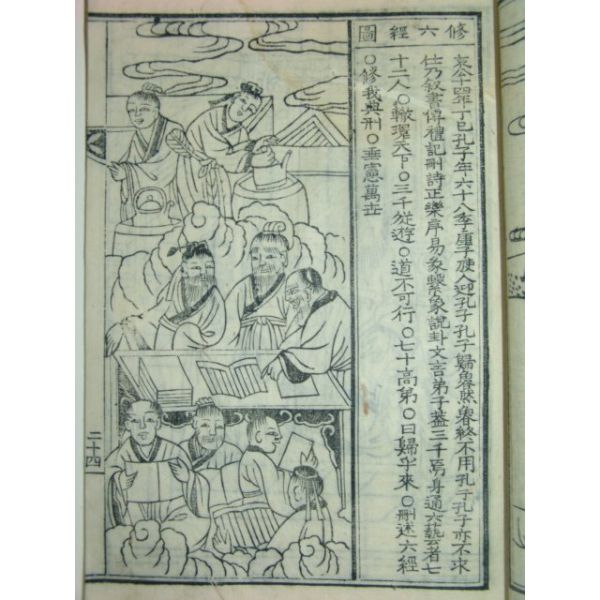 修六經圖
哀公十四年丁巳孔子年六十八季康子使人迎孔子孔子歸魯然魯終不用孔子孔子亦不求
仕乃叙書傳禮記刪詩正樂序易彖繫象說卦文言弟子蓋三千焉身通六藝者七
十二人○轍環天下○三千從遊○道不可行○七十高第○曰歸乎來○刪述六經
○修我典刑○垂憲萬世
二十四